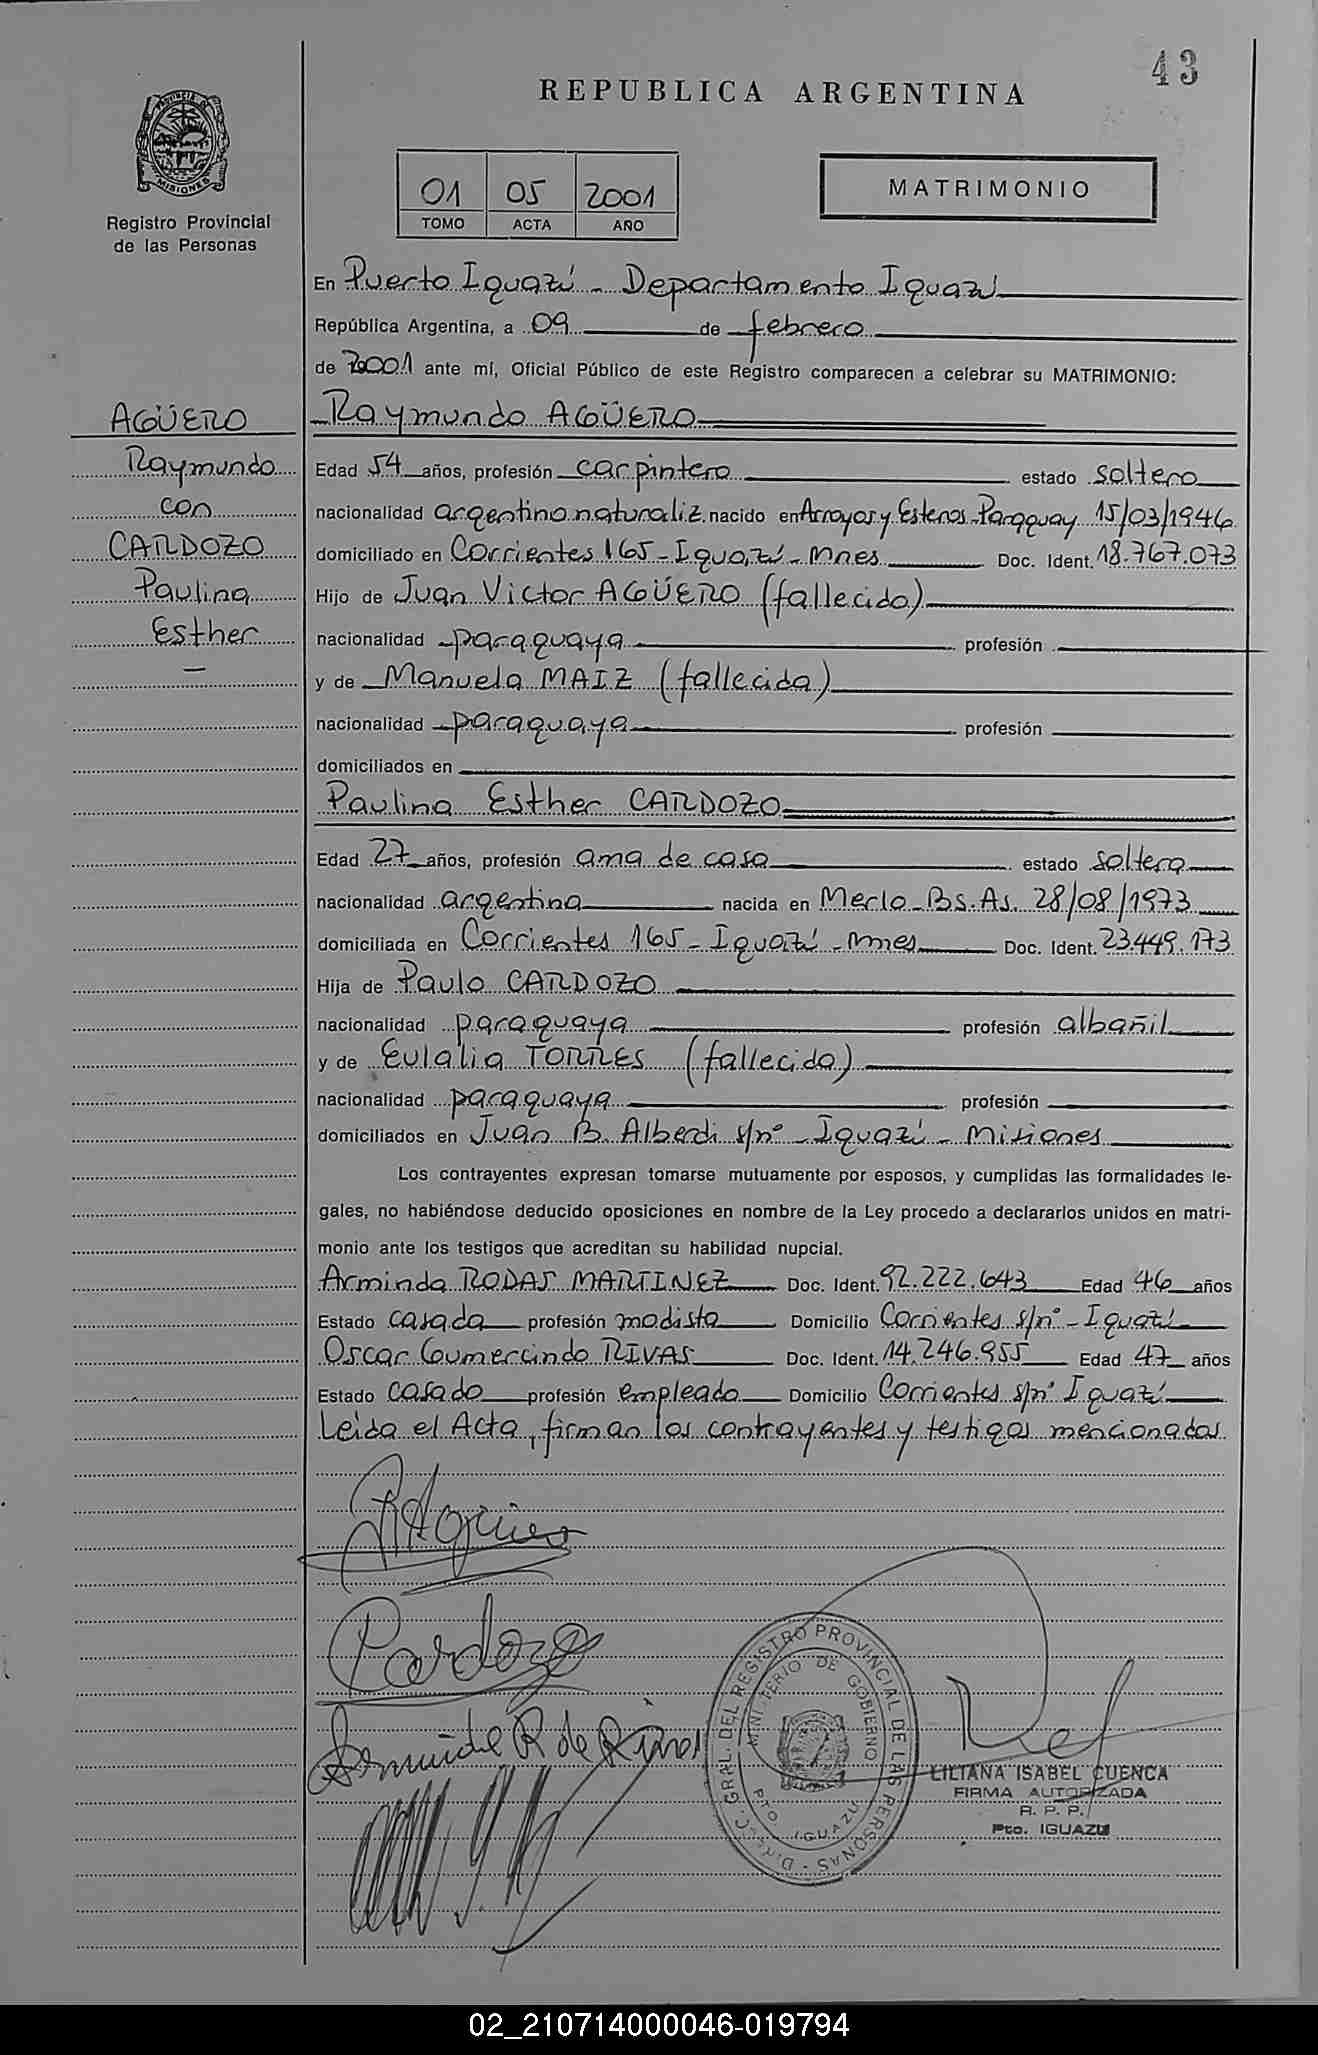 43
REPUBLICA ARGENTINA
PROVINCIA DE
MISIONES
Registro Provincial
de las Personas
01 05 2001
TOMO ACTA AÑO
MATRIMONIO
En Puerto Iguazú - Departamento Iguazú
República Argentina, a 09 de febrero
de 2001 ante mí, Oficial Público de este Registro comparecen a celebrar su MATRIMONIO:
AGÜERO
Raymundo
con
CARDOZO
Paulina
Esther
Raymundo AGÜERO
Edad 54 años, profesión carpintero estado soltero
nacionalidad argentino naturaliz. nacido en Arroyos y Esteros-Paraguay 15/03/1946
domiciliado en Corrientes 165-Iguazú-Mnes Doc. Ident. 18.767.073
Hijo de Juan Victor AGÜERO (fallecido)
nacionalidad paraguaya profesión
y de Manuela MAIZ (fallecida)
nacionalidad paraguaya profesión
domiciliados en
Paulina Esther CARDOZO
Edad 27 años, profesión ama de casa estado soltera
nacionalidad argentina nacida en Merlo-Bs.As. 28/08/1973
domiciliada en Corrientes 165-Iguazú-Mnes Doc. Ident. 23.449.173
Hija de Paulo CARDOZO
nacionalidad paraguaya profesión albañil
y de Eulalia TORRES (fallecida)
nacionalidad paraguaya profesión
domiciliados en Juan B. Alberdi s/nº - Iguazú - Misiones
Los contrayentes expresan tomarse mutuamente por esposos, y cumplidas las formalidades le-
gales, no habiéndose deducido oposiciones en nombre de la Ley procedo a declararlos unidos en matri-
monio ante los testigos que acreditan su habilidad nupcial.
Arminda RODAS MARTINEZ Doc. Ident. 92.222.643 Edad 46 años
Estado casada profesión modista Domicilio Corrientes s/nº - Iguazú
Oscar Gumercindo RIVAS Doc. Ident. 14.246.955 Edad 47 años
Estado casado profesión empleado Domicilio Corrientes s/nº Iguazú
Leída el Acta, firman los contrayentes y testigos mencionados.
R Agüero
Cardozo
Arminda R de Rivas
DIREC. GRAL. DEL REGISTRO PROVINCIAL DE LAS PERSONAS
MINISTERIO DE GOBIERNO
PTO. IGUAZU
LILIANA ISABEL CUENCA
FIRMA AUTORIZADA
R. P. P.
Pto. IGUAZU
02_210714000046-019794